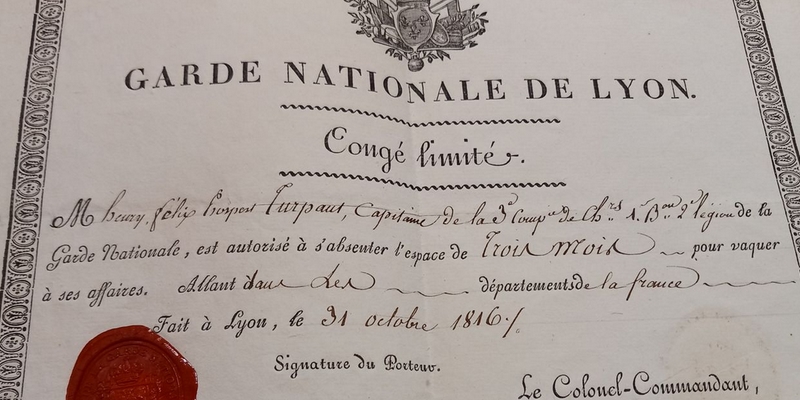 GARDE NATIONALE DE LYON.
Congé limité.
M henry félix prosper Turpaut, Capitaine de la 3e Comp.ie de Ch.rs 1.er B.on 2e légion de la
Garde Nationale, est autorisé à s'absenter l'espace de trois mois pour vaquer
à ses affaires. Allant dans les départements de la france
Fait à Lyon, le 31 octobre 1816./.
Signature du Porteur.
Le Colonel-Commandant,